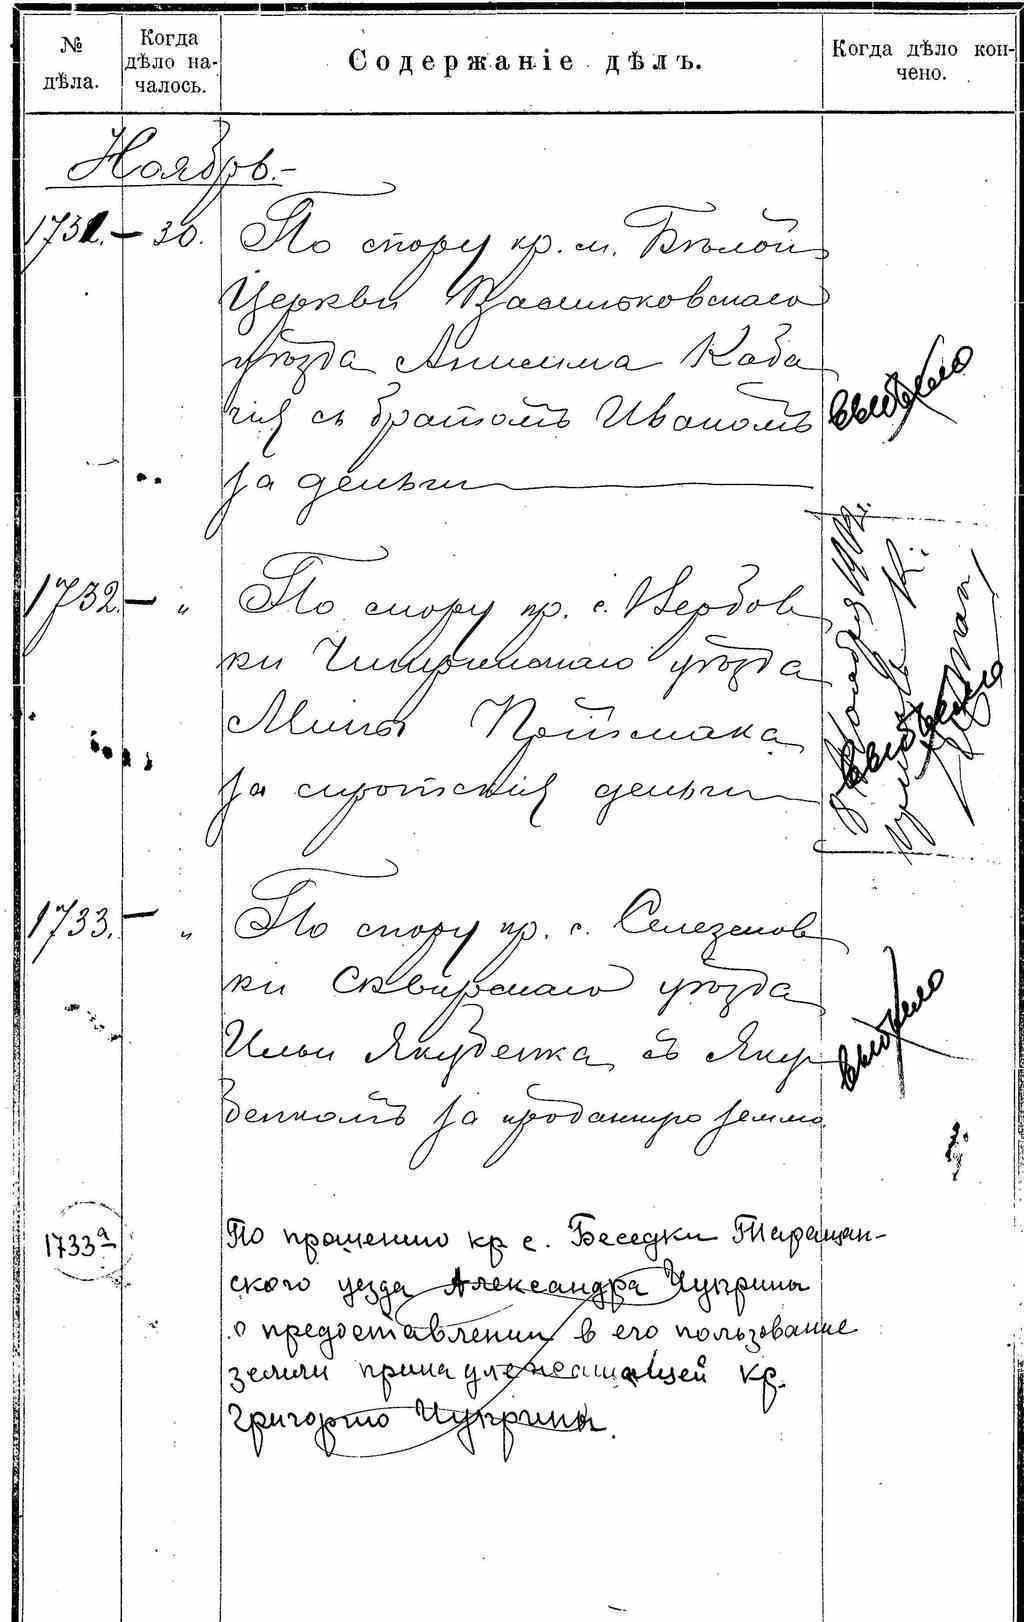 № дѣла.
Когда дѣло на-
чалось.
Содержаніе дѣлъ.
Когда дѣло кон-
чено.
Ноябрь.-
1731. — 30. По спору кр. м. Бѣлой
Церкви Васильковскаго
уѣзда Анисима Каба
чія съ братомъ Иваномъ
за деньги
выбыло
1732. — „ По спору кр. с. Вербов
ки Чигиринскаго уѣзда
Мины
за сиротскія деньги
выбыло
1733. — „ По спору кр. с. Селезенов
ки Сквирскаго уѣзда
Ильи Якубенка съ Яку
бенкомъ за проданную землю
выбыло
1733а По прошению кр с. Беседки Таращан-
ского уезда Александра Чуприны
о предоставлении в его пользование
земли принадлежащей кр.
Григорию Чуприны.